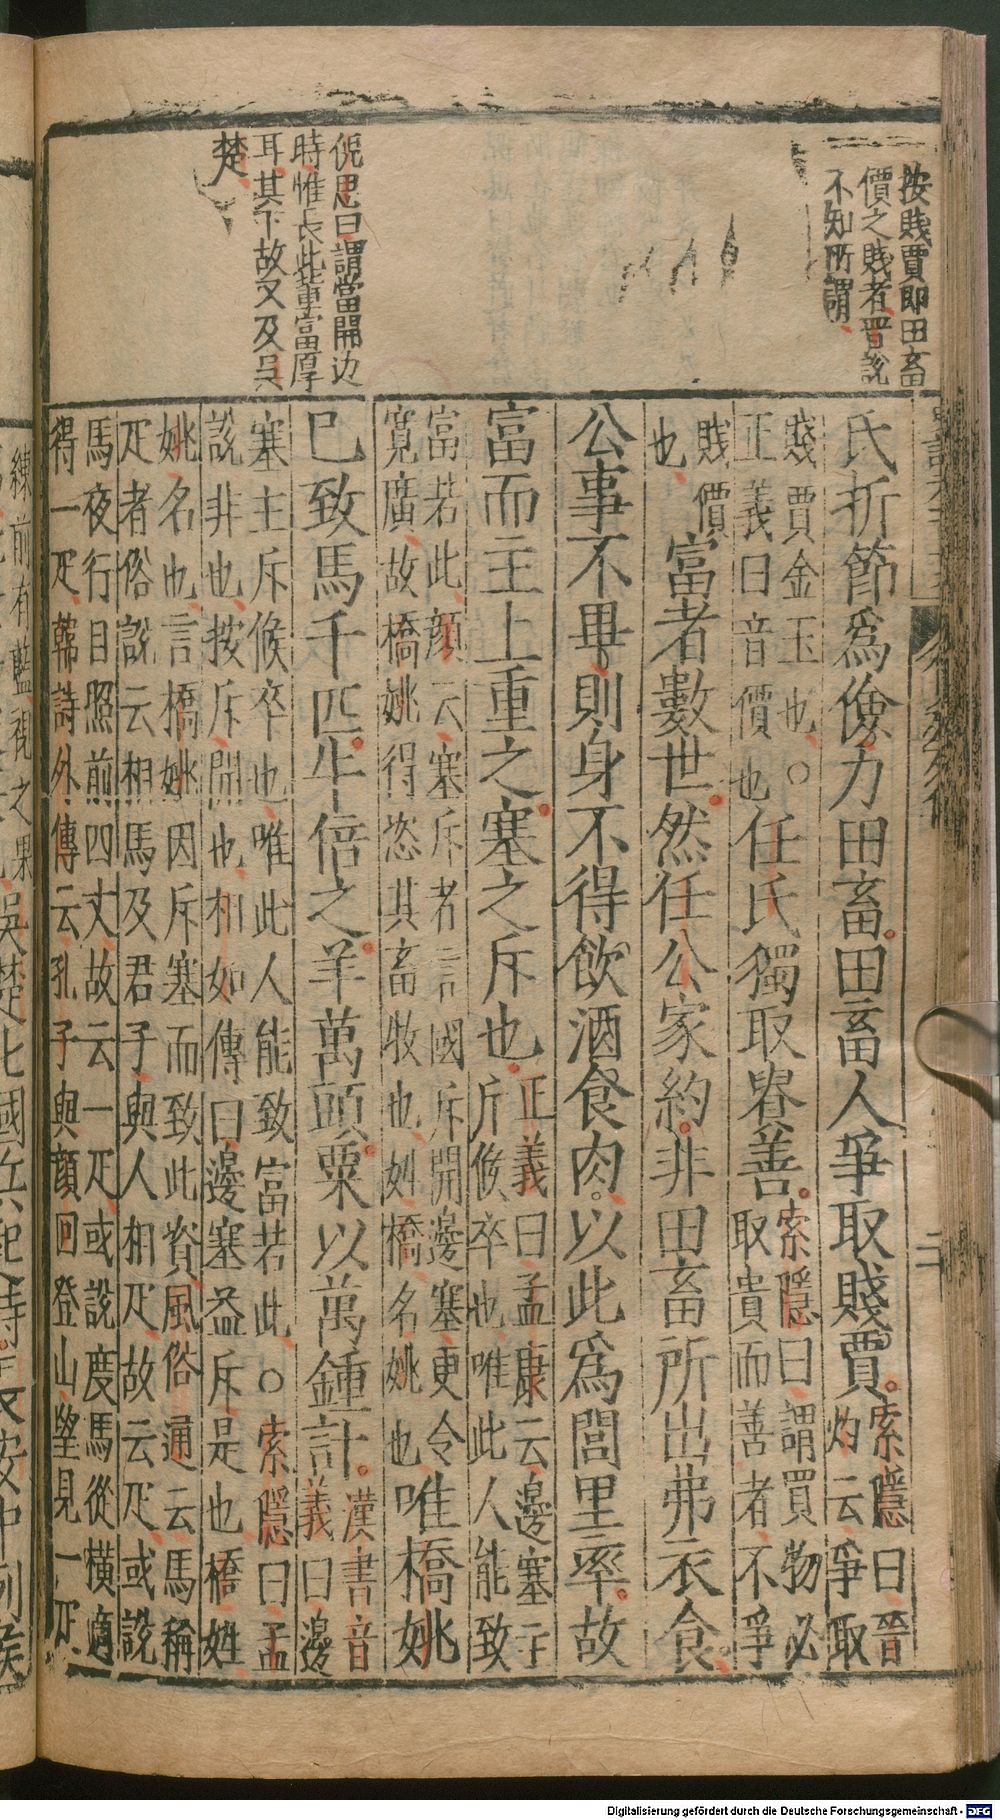 按賤賈即田畜
價之賤者晋說
不知所謂
倪思曰謂當開边
時惟長此輩富厚
耳其下故又及吳
楚
氏折節爲儉力田畜田畜人爭取賤賈索隱曰晉
灼云爭取
賤賈金玉也○
正義曰音價也
任氏獨取貴善索隱曰謂買物必
取貴而善者不爭
賤價
也
富者數世然任公家約非田畜所出弗衣食
公事不畢則身不得飲酒食肉以此爲閭里率故
富而主上重之塞之斥也正義曰孟康云邊塞主
斥候卒也唯此人能致
富若此顔云塞斥者言國斥開邊塞更令
寬廣故橋姚得恣其畜牧也姓橋名姚也
唯橋姚
巳致馬千匹牛倍之羊萬頭粟以萬鍾計漢書音
義曰邊
塞主斥候卒也唯此人能致富若此○索隱曰孟
說非也按斥開也相如傳曰邊塞益斥是也橋姓
姚名也言橋姚因斥塞而致此資風俗通云馬稱
疋者俗說云相馬及君子與人相疋故云疋或說
馬夜行目照前四丈故云一疋或說度馬從橫適
得一疋韓詩外傳云孔子與顏回登山望見一疋
練前有藍視之果
吳楚七國兵起時長安中列侯
二
Digitalisierung gefördert durch die Deutsche Forschungsgemeinschaft - DFG